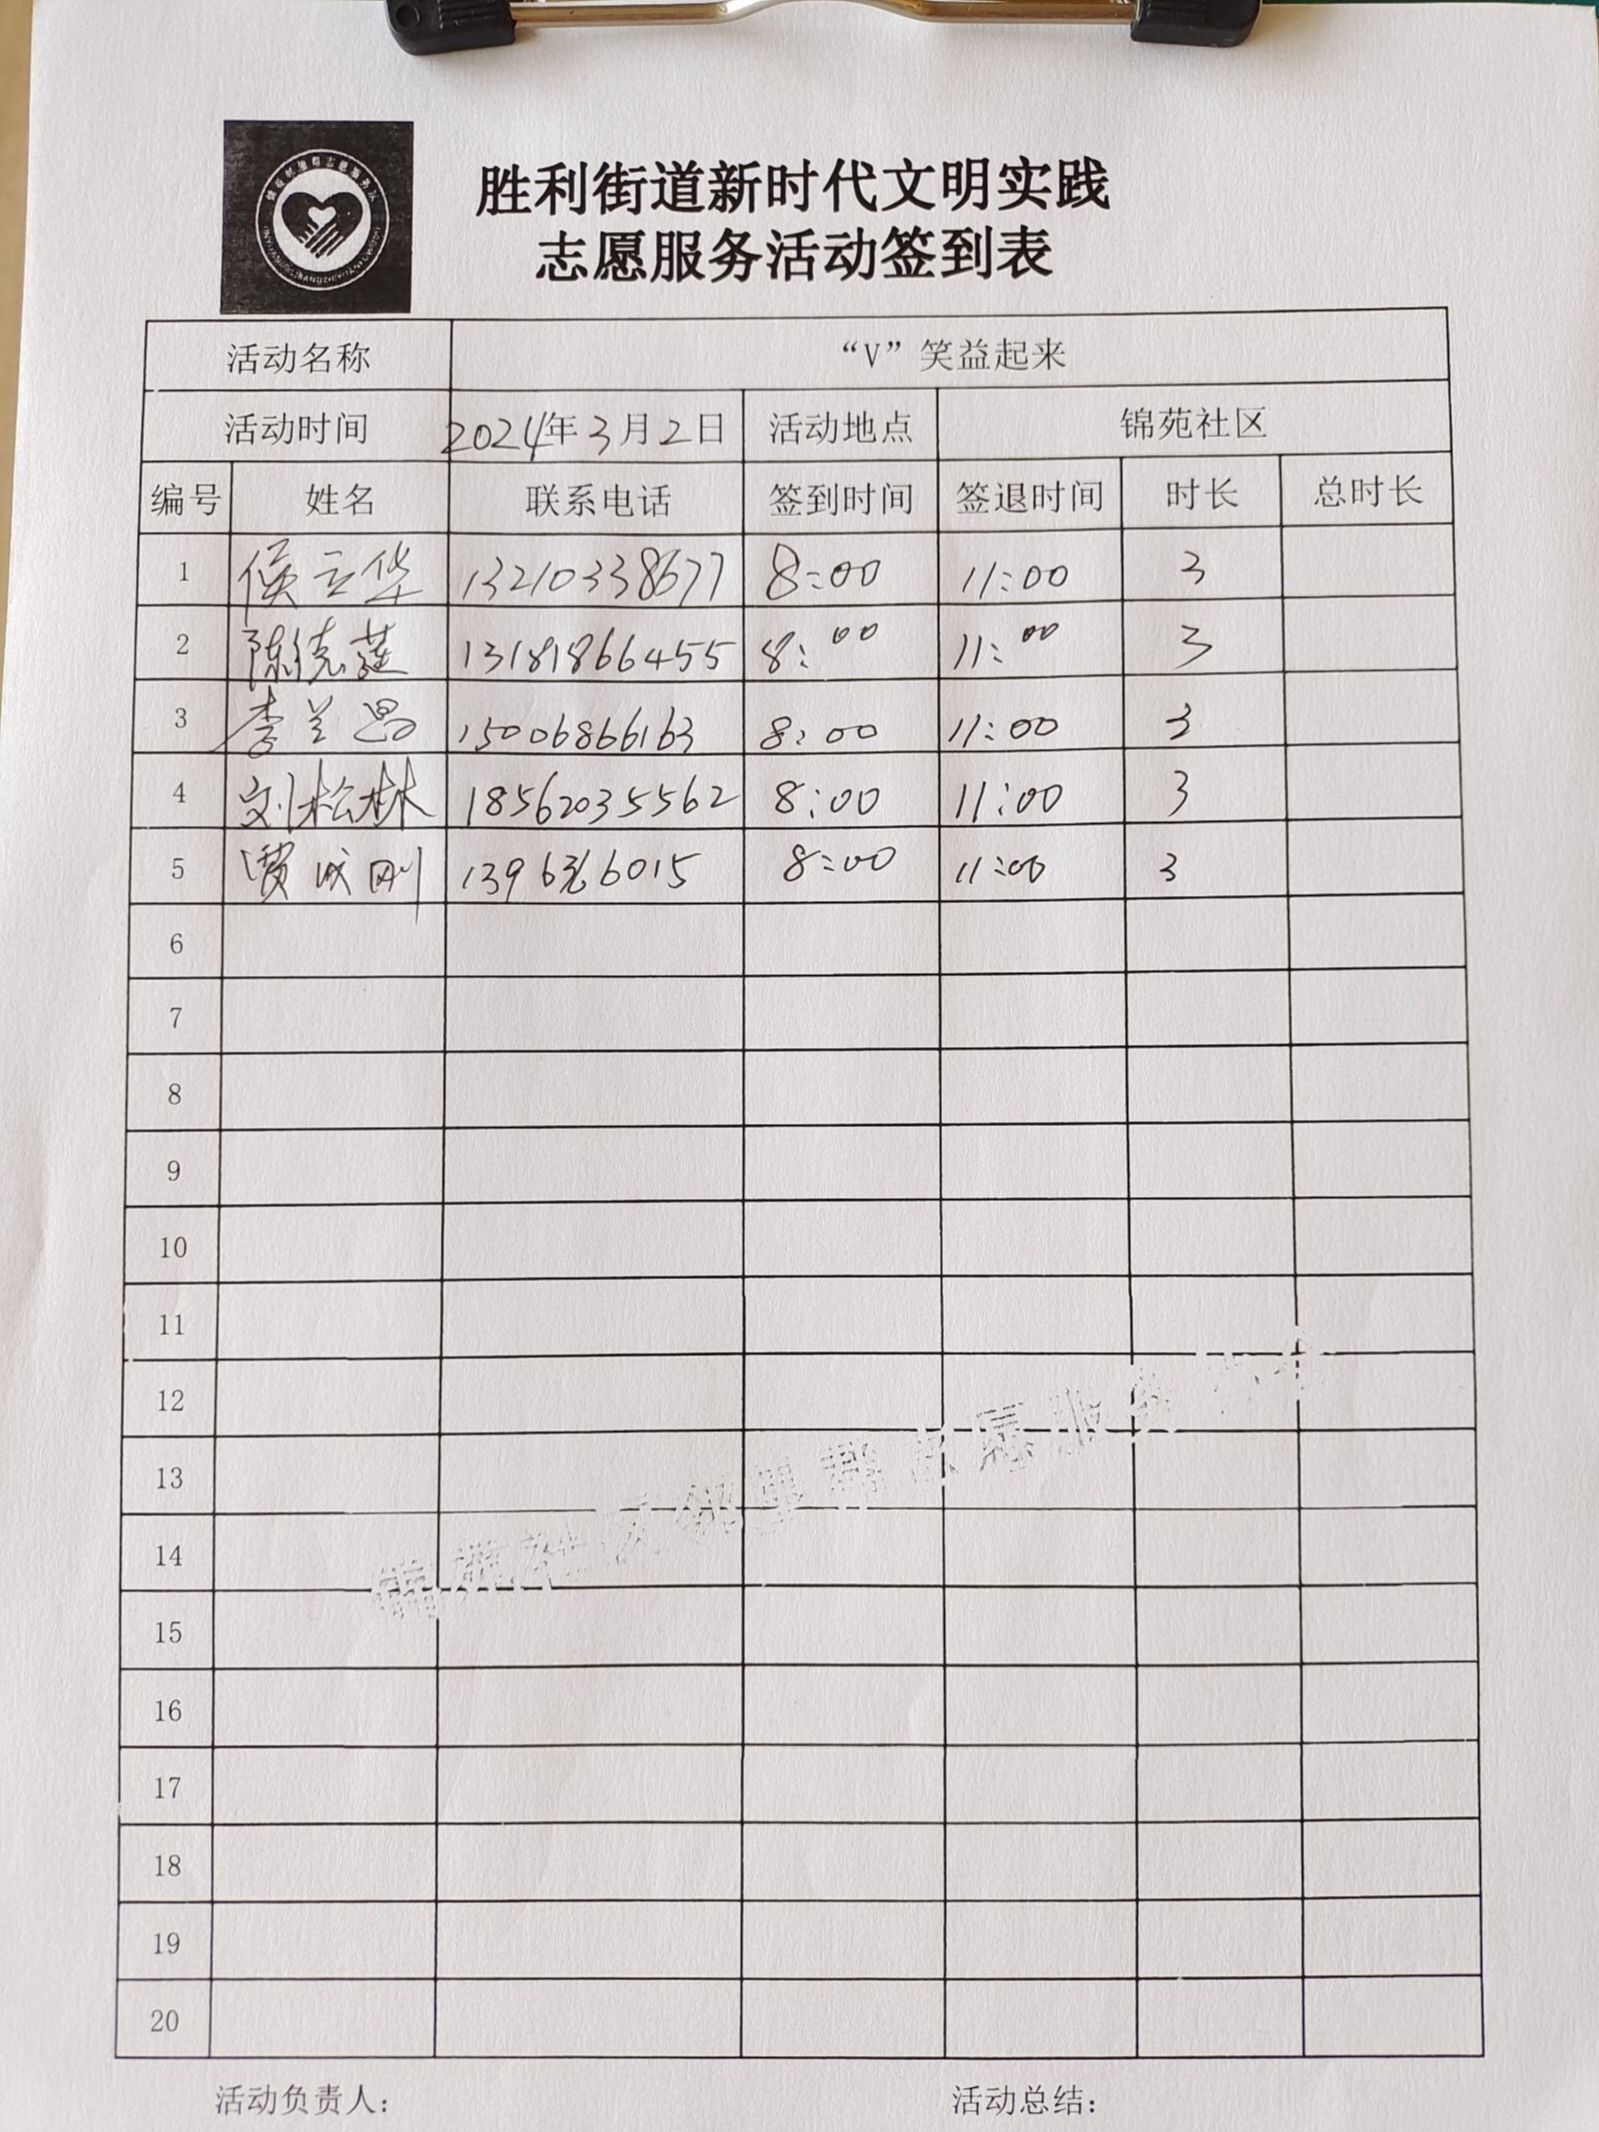 胜利街道新时代文明实践
志愿服务活动签到表
活动名称 “V”笑益起来
活动时间 2024年3月2日 活动地点 锦苑社区
编号 姓名 联系电话 签到时间 签退时间 时长 总时长
1 侯立华 13210338677 8:00 11:00 3
2 陈德莲 13181866455 8:00 11:00 3
3 李兰昌 15006866163 8:00 11:00 3
4 刘松林 18562035562 8:00 11:00 3
5 贾成刚 8:00 11:00 3
6
7
8
9
10
11
12
13
14
15
16
17
18
19
20
锦苑社区邻里帮志愿服务
活动负责人: 活动总结: